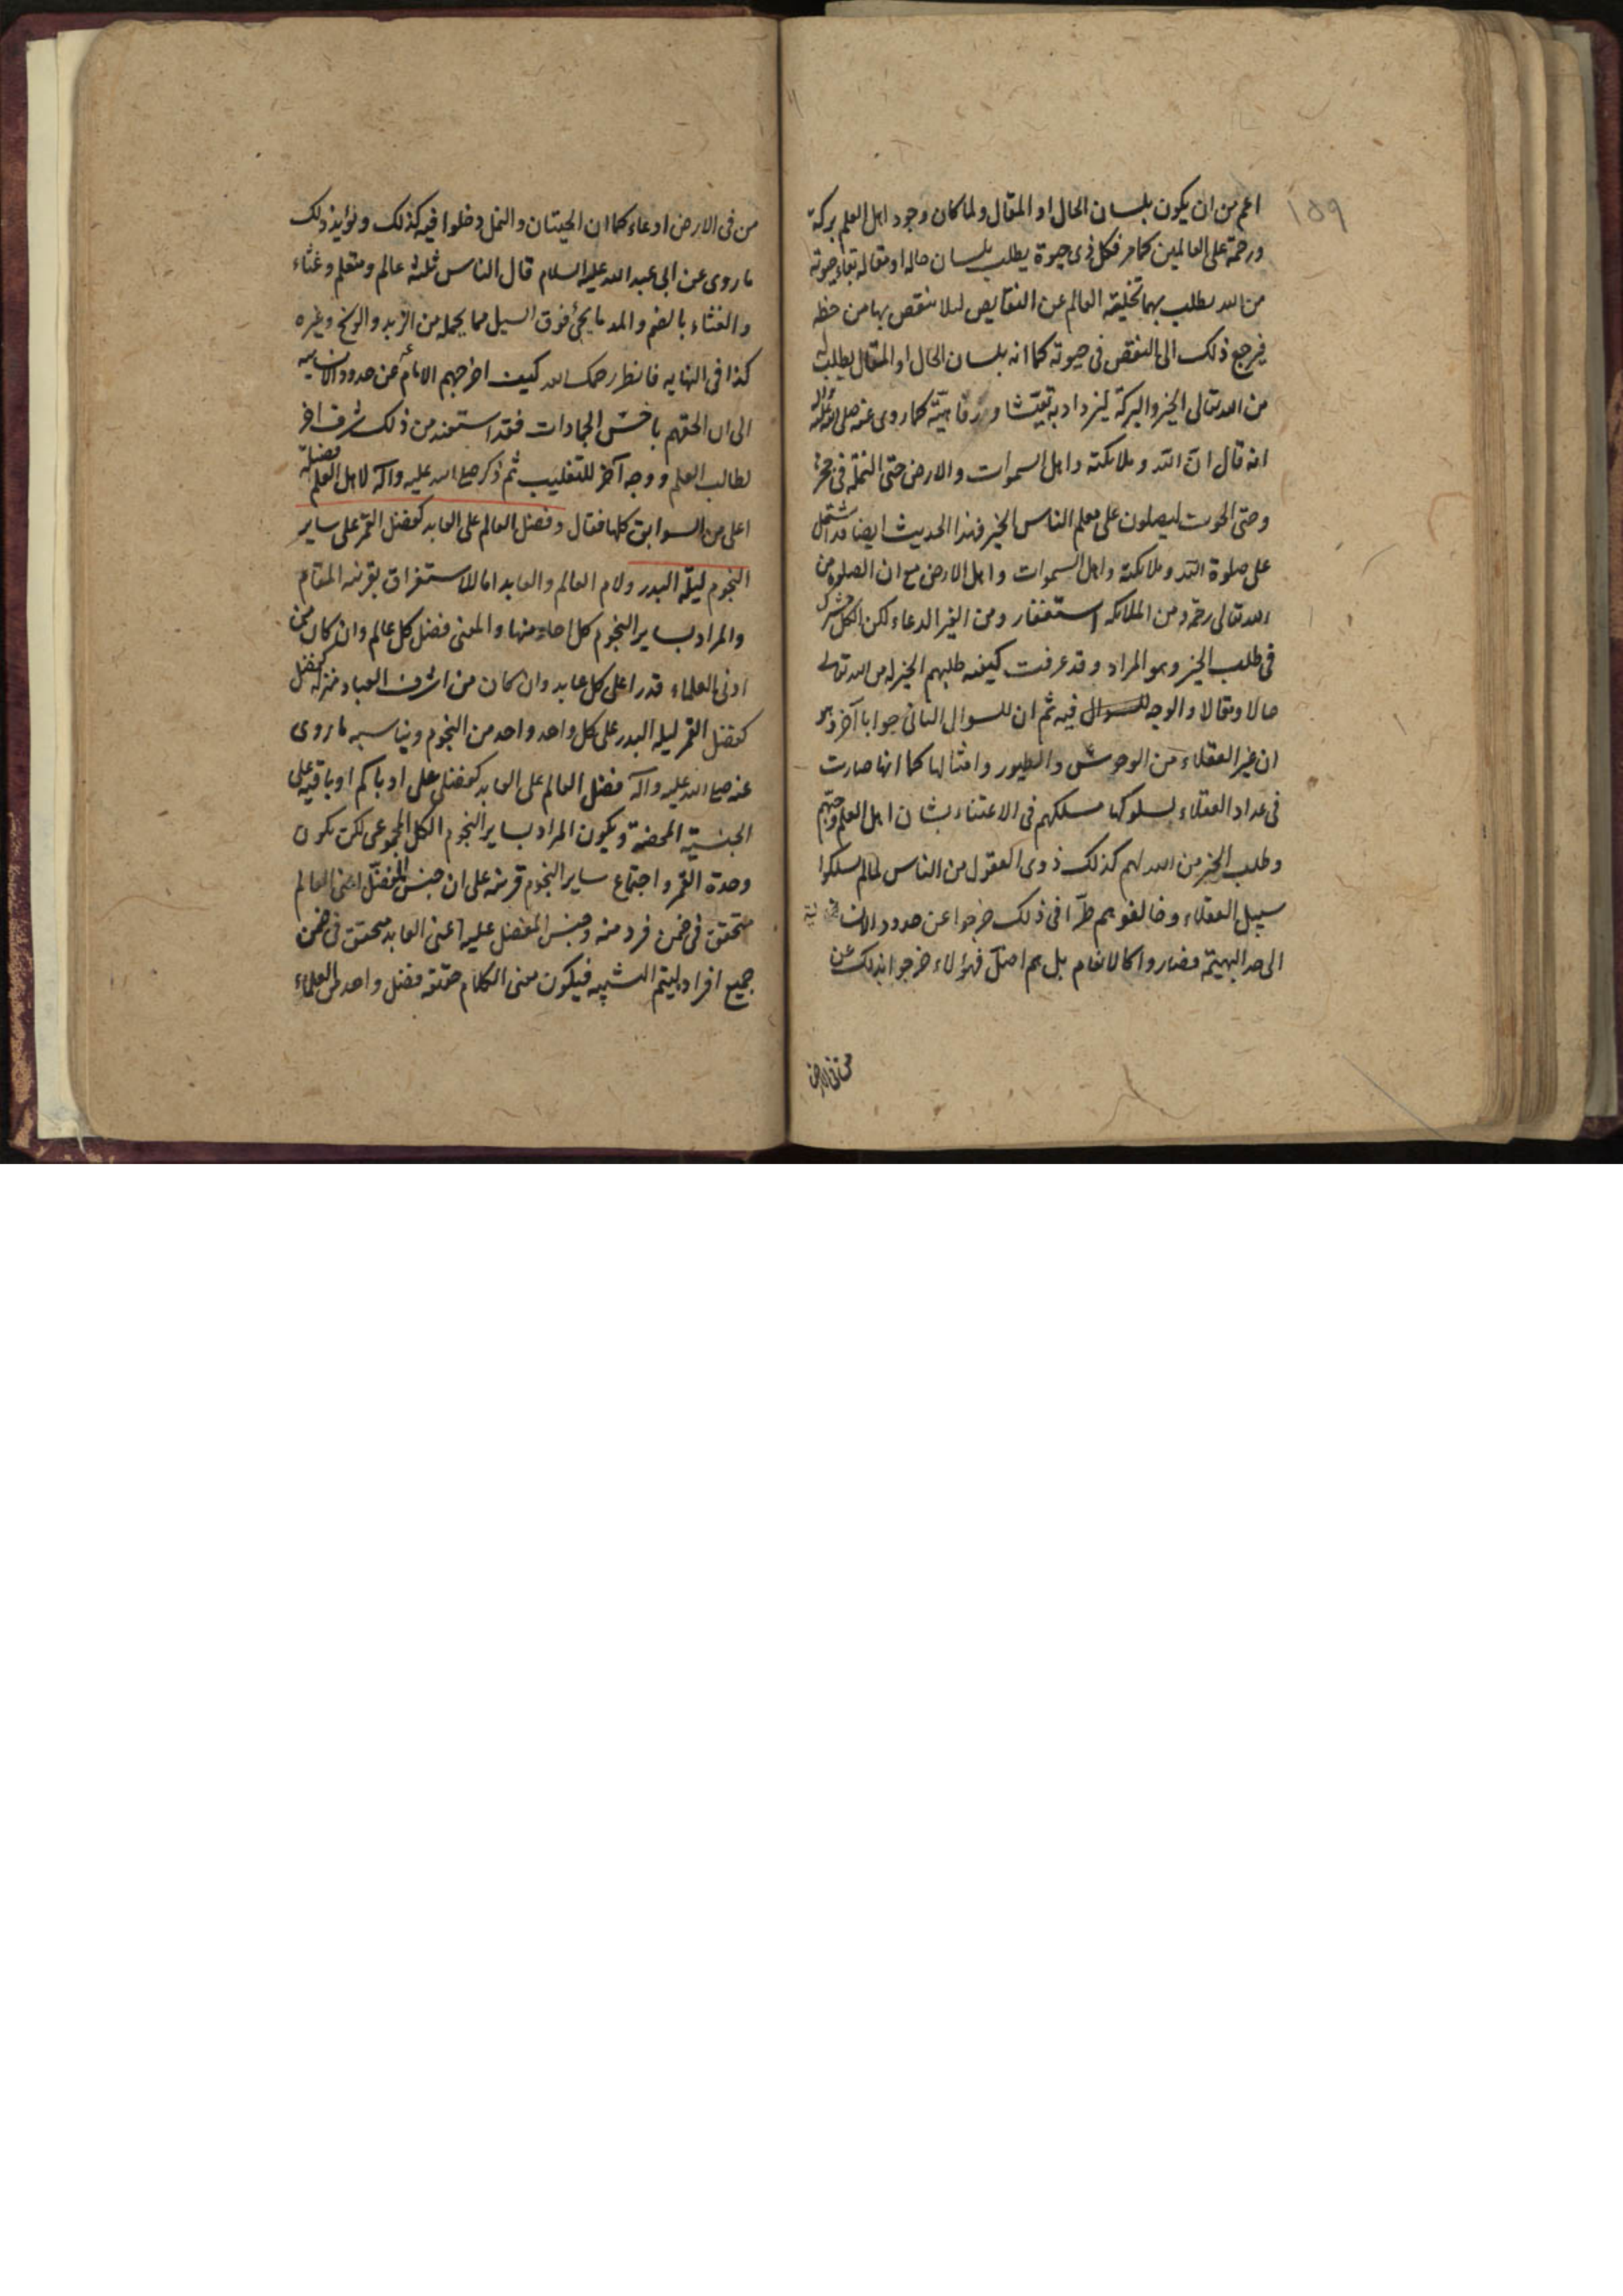 ١٥٩
اعم من ان يكون بلسان الحال او المقال ولما كان وجود اهل العلم بركة
ورحمة على العالمين كما مر فكل ذى حيوة يطلب بلسان حاله او مقاله بقاء حيوته
من الله يطلب بهما تخلية العالم عن النقايص لئلا ينقص بها من حظه
فيرجع ذلك الى النقص فى حيوته كما انه بلسان الحال او المقال يطلب له
من الله تعالى الخير والبركة ليزداد به تعيّشا ورفاهيّة كما روى عنه صلى الله عليه وآله
انه قال انّ الله وملائكته واهل السموات والارض حتى النملة فى جحرها
وحتى الحوت ليصلون على معلم الناس الخير فهذا الحديث ايضا قد اشتمل
على صلوة الله وملائكته واهل السموات واهل الارض مع ان الصلوة من
الله تعالى رحمة ومن الملائكة استغفار ومن الغير الدعاء لكن الكل مشترك
فى طلب الخير وهو المراد وقد عرفت كيفية طلبهم الخير له من الله تعالى
حالا ومقالا والوجه للسوال فيه ثم ان للسوال الثانى جوابا آخر وهو
ان غير العقلاء من الوحوش والطيور وامثالها كما انها صارت
فى عداد العقلاء لسلوكها مسلكهم فى الاعتناء بشان اهل العلم وحبّهم
وطلب الخير من الله لهم كذلك ذوى العقول من الناس لما لم يسلكوا
سبيل العقلاء وخالفوهم طرّا فى ذلك خرجوا عن حدود الانسانية
الى حد البهيمة فصاروا كالانعام بل هم اضلّ فهؤلاء خرجوا بذلك عن
من فى الارض
من فى الارض ادعاء كما ان الحيتان والنمل دخلوا فيه كذلك ويؤيد ذلك
ما روى عن ابى عبد الله عليه السلام قال الناس ثلثة عالم ومتعلم وغثاء
والغثاء بالضم والمد ما يجئ فوق السيل مما يحمله من الزبد والوسخ وغيره
كذا فى النهايه فانظر رحمك الله كيف اخرجهم الامام ع عن حدود الانسانيه
الى ان الحقهم باخسّ الجمادات فقد استفيد من ذلك شرف اخر
لطالب العلم ووجه آخر للتغليب ثم ذكر صلى الله عليه وآله لاهل العلم فضيلة
اعلى من السوابق كلها فقال وفضل العالم على العابد كفضل القمر على ساير
النجوم ليلة البدر ولام العالم والعابد اما للاستغراق بقرينة المقام
والمراد بساير النجوم كل احاد منها والمعنى فضل كل عالم وان كان من
ادنى العلماء قدرا على كل عابد وان كان من اشرف العباد منزلة كفضل
كفضل القمر ليله البدر على كل واحد واحد من النجوم ويناسبه ما روى
عنه صلى الله عليه وآله فضل العالم على العابد كفضلى على ادناكم او باقيه على
الجنسية المحضة ويكون المراد بساير النجوم الكل المجموعى لكن يكون
وحدة القمر واجتماع ساير النجوم قرينة على ان جنس المفضّل اعنى العالم
متحقق فى ضمن فرد منه وجنس المفضل عليه اعنى العابد متحقق فى ضمن
جميع افراده ليتم التشبيه فيكون معنى الكلام حقيقة فضل واحد من العلماء